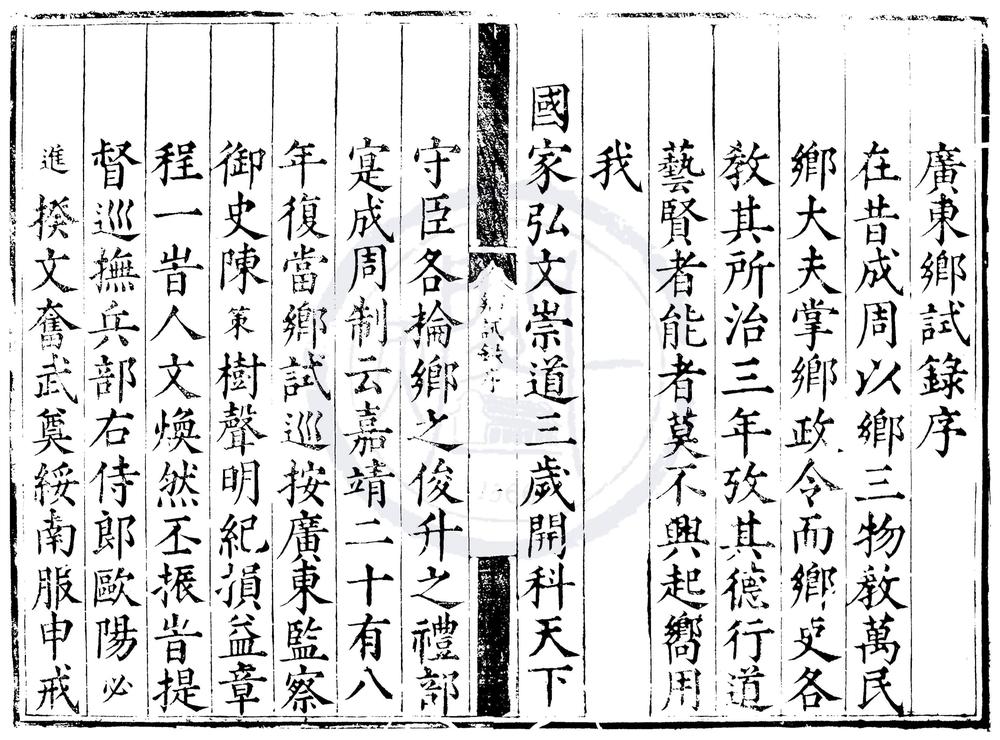 廣東鄉試錄序
在昔成周以鄉三物敎萬民
鄉大夫掌鄉政令而鄉吏各
敎其所治三年攷其德行道
藝賢者能者莫不興起嚮用
我
國家弘文崇道三歲開科天下
鄉試錄序
守臣各掄鄉之俊升之禮部
寔成周制云嘉靖二十有八
年復當鄉試巡按廣東監察
御史陳策樹聲明紀損益章
程一旹人文煥然丕振旹提
督巡撫兵部右侍郎歐陽必
進揆文奮武奠綏南服申戒